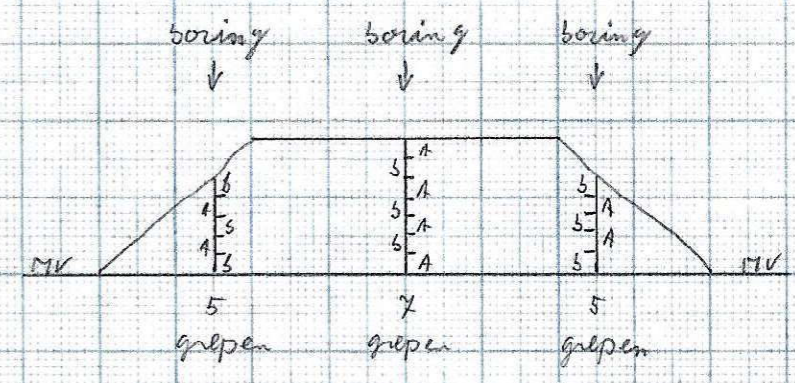 boring boring boring
A
B
B A B
A B A
B A B
A B A
MV B A B MV
5 7 5
grepen grepen grepen